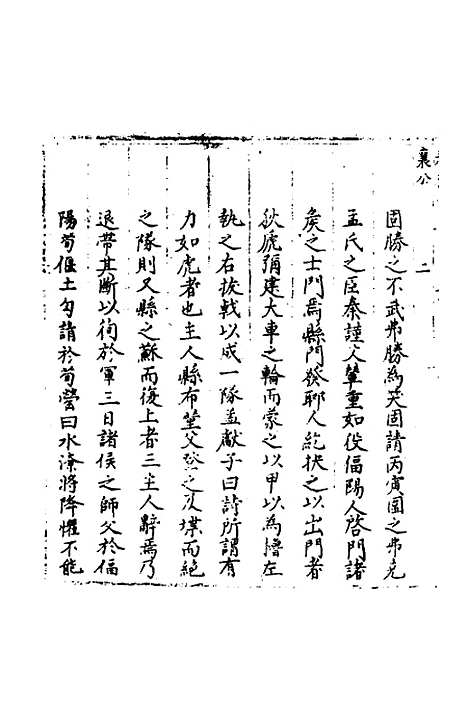 襄公
二
固勝之不武弗勝為笑固請丙寅圍之弗克
孟氏之臣秦堇父輦重如役偪陽人啓門諸
侯之士門焉縣門發郰人紇抉之以出門者
狄虒彌建大車之輪而蒙之以甲以為櫓左
執之右拔戟以成一隊孟獻子曰詩所謂有
力如虎者也主人縣布堇父登之及堞而絕
之隊則又縣之蘇而復上者三主人辭焉乃
退帶其斷以徇於軍三日諸侯之師久於偪
陽荀偃士匄請於荀罃曰水潦將降懼不能